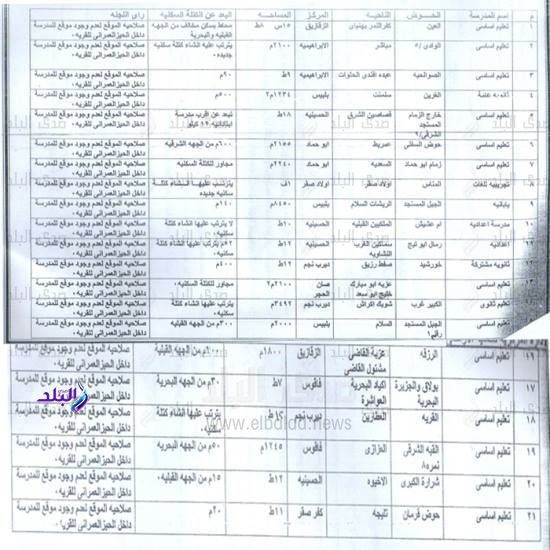 م اسم المدرسة الحوض الناحية المركز المساحه البعد عن الكتلة السكنيه راى اللجنه
١ تعليم اساسى العين كفر النمر بهنباى الزقازيق ١٥س ٨ط محاط بسكن مخالف من الجهه القبليه والبحرية صلاحيه الموقع لعدم وجود موقع للمدرسة داخل الحيز العمرانى للقريه ٠
٢ تعليم اساسى الوادى /٥ مباشر الابراهيميه ٢١٠٠م يترتب عليه انشاء كتلة جديده صلاحيه الموقع لعدم وجود موقع للمدرسة داخل الحيز العمرانى للقريه ٠
٣ تعليم اساسى الصوالحيه عبده افندى الحلوات الابراهيميه ٩ط ٢٠م صلاحيه الموقع لعدم وجود موقع للمدرسة داخل الحيز العمرانى للقريه ٠
٤ ثانويه عامة الغرين سلمنت بلبيس ١٢٣٤م٢ ٥٠٠م صلاحيه الموقع لعدم وجود موقع للمدرسة داخل الحيز العمرانى للقريه ٠
٥ تعليم اساسى خارج الزمام المستجد الشرقى/٩ قصاصين الشرق الحسينيه ١٨ط تبعد عن اقرب مدرسة ابتدائيه ١٢ كيلو صلاحيه الموقع لعدم وجود موقع للمدرسة داخل الحيز العمرانى للقريه ٠
٦ تعليم اساسى حوض الساقى عمريط ابو حماد ٢١٥٥م ٦٠٠م من الجهه الشرقيه صلاحيه الموقع لعدم وجود موقع للمدرسة داخل الحيز العمرانى للقريه ٠
٧ تعليم اساسى زمام ابو حماد السعديه ابو حماد ٢٢٤٠م مجاور للكتلة السكنيه صلاحيه الموقع لعدم وجود موقع للمدرسة داخل الحيز العمرانى للقريه ٠
٨ تجريبيه لغات المناس اولاد صقر اولاد صقر ١ف يترتب عليها انشاء كتلة سكنيه جديده صلاحيه الموقع لعدم وجود موقع للمدرسة داخل الحيز العمرانى للقريه ٠
٩ يابانيه الجبل المستجد الربشات السلام بلبيس ٨٤٥٠م ١٤٠م صلاحيه الموقع لعدم وجود موقع للمدرسة داخل الحيز العمرانى للقريه ٠
١٠ مدرسة اعداديه ام عشيش الملكيين القبليه الحسينيه ٢٠ط لا يترتب عليها انشاء كتلة سكنيه صلاحيه الموقع لعدم وجود موقع للمدرسة داخل الحيز العمرانى للقريه ٠
اعداديه رمال ابو تيج سماكين الغرب الحسينيه ١٢ط صلاحيه الموقع لعدم وجود موقع للمدرسة داخل الحيز العمرانى للقريه ٠
ثانويه مشتركة خورشيد صفط رزيق ديرب نجم ١٢ط ٤٠٠م صلاحيه الموقع لعدم وجود موقع للمدرسة داخل الحيز العمرانى للقريه ٠
تعليم اساسى عزبه ابو مبارك خليج ابو سعد صان الحجر ٢١٠٠م صلاحيه الموقع لعدم وجود موقع للمدرسة داخل الحيز العمرانى للقريه ٠
تعليم ثانوى الكبير غرب شوبك اكراش ديرب نجم ٣٤٩٢م يترتب عليها انشاء كتلة سكنيه صلاحيه الموقع لعدم وجود موقع للمدرسة داخل الحيز العمرانى للقريه ٠
تعليم اساسى الجبل المستجد السلام بلبيس ٢٠٠٠م ٣٠٠م من الجهه القبليه صلاحيه الموقع لعدم وجود موقع للمدرسة داخل الحيز العمرانى للقريه ٠
١٦ تعليم اساسى الرزقه عزبة القاضى مشتول القاضى الزقازيق ١٨٠٠م من الجهه القبلية صلاحيه الموقع لعدم وجود موقع للمدرسة داخل الحيز العمرانى للقريه ٠
١٧ تعليم اساسى بولاق والجزيرة البحرية اكياد البحرية فاقوس ٧ط ٣٠م من الجهه البحرية صلاحيه الموقع لعدم وجود موقع للمدرسة داخل الحيز العمرانى للقريه ٠
١٨ تعليم اساسى القريه العطارين ديرب نجم ١٢ط يترتب عليها انشاء كتلة سكنيه صلاحيه الموقع لعدم وجود موقع للمدرسة داخل الحيز العمرانى للقريه ٠
١٩ تعليم اساسى القبه الشرقى نمره ٨ العزازى فاقوس ١٢٤٥م ٥٠م من الجهه البحريه صلاحيه الموقع لعدم وجود موقع للمدرسة داخل الحيز العمرانى للقريه ٠
٢٠ تعليم اساسى شرارة الكبرى الاخيوه الحسينيه ١٢ط ١٥م من الجهه القبليه صلاحيه الموقع لعدم وجود موقع للمدرسة داخل الحيز العمرانى للقريه ٠
٢١ تعليم اساسى حوض فرمان تليجه كفر صقر ١١ط ٢٠م صلاحيه الموقع لعدم وجود موقع للمدرسة داخل الحيز العمرانى للقريه ٠
صدى البلد
www.elbalad.news